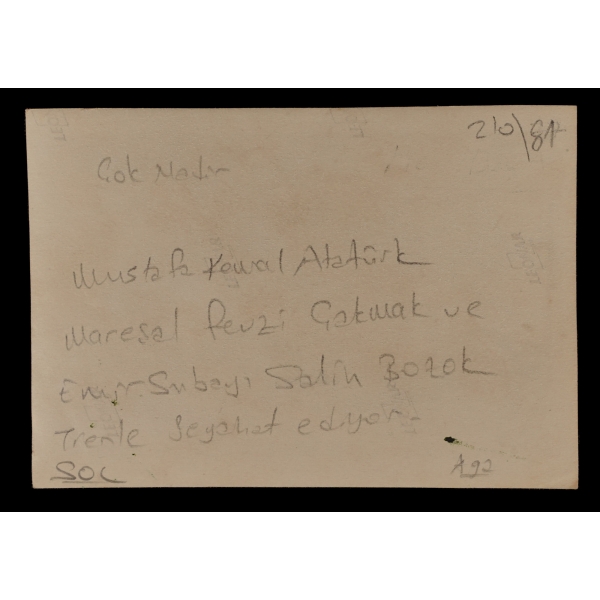 210\81
Çok Nadir
Mustafa Kemal Atatürk
Mareşal Fevzi Çakmak ve
Emir Subayı Salih Bozok
Trenle Seyahat ediyor-